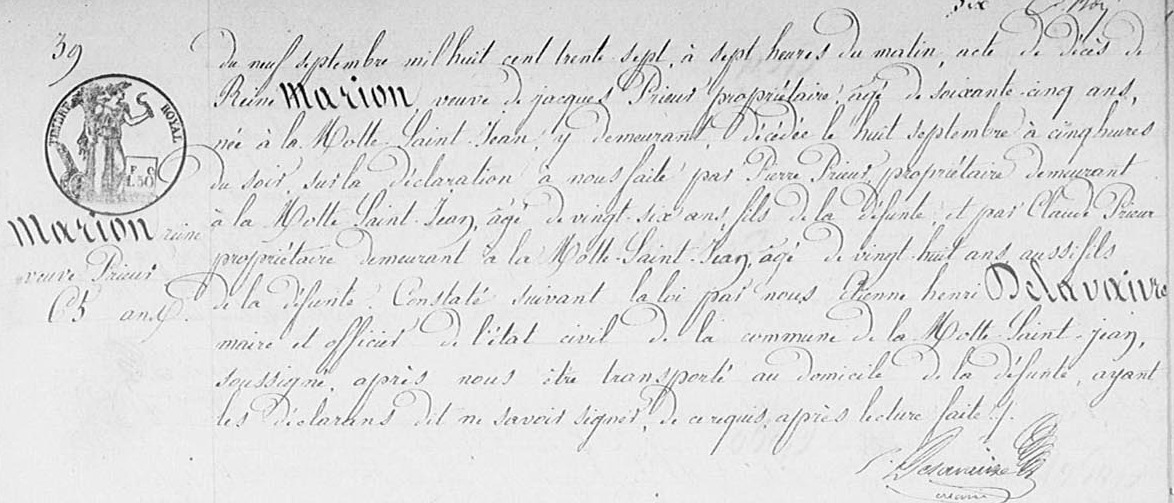 39
TIMBRE ROYAL
F. C
1.50
Marion reine
veuve Prieur
65 ans.
Du neuf septembre mil huit cent trente sept, à sept heures du matin, acte de décès de
Reine Marion, veuve de jacques Prieur propriétaire, âgé de soixante-cinq ans,
née à la Motte-Saint-Jean, y demeurant, décédée le huit septembre à cinq heures
du soir, sur la déclaration à nous faite par Pierre Prieur, propriétaire demeurant
à la Motte-Saint-Jean, âgé de vingt-six ans, fils de la défunte, et par Claude Prieur
propriétaire demeurant à la Motte-Saint-Jean, âgé de vingt-huit ans, aussi fils
de la défunte. Constaté suivant la loi par nous Etienne henri Delavaivre
maire et officier de l'état civil de la commune de la Motte-Saint-jean,
soussigné, après nous être transporté au domicile de la défunte, ayant
les déclarans dit ne savoir signer, de ce requis, après lecture faite ./.
Delavaivre
maire